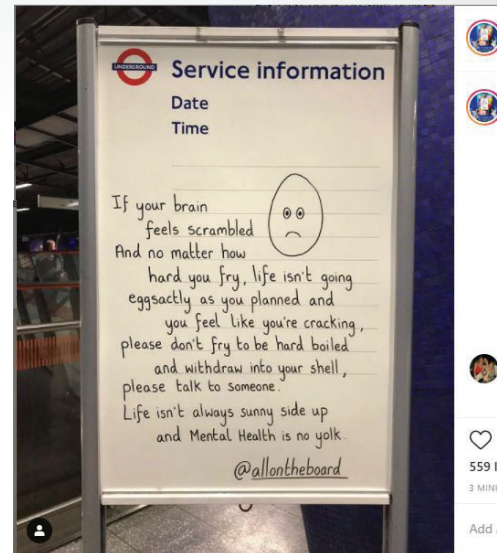 UNDERGROUND
Service information
Date
Time
If your brain
feels scrambled
And no matter how
hard you fry, life isn't going
eggsactly as you planned and
you feel like you're cracking,
please don't fry to be hard boiled
and withdraw into your shell,
please talk to someone.
Life isn't always sunny side up
and Mental Health is no yolk.
@allontheboard
559
3 MIN
Add